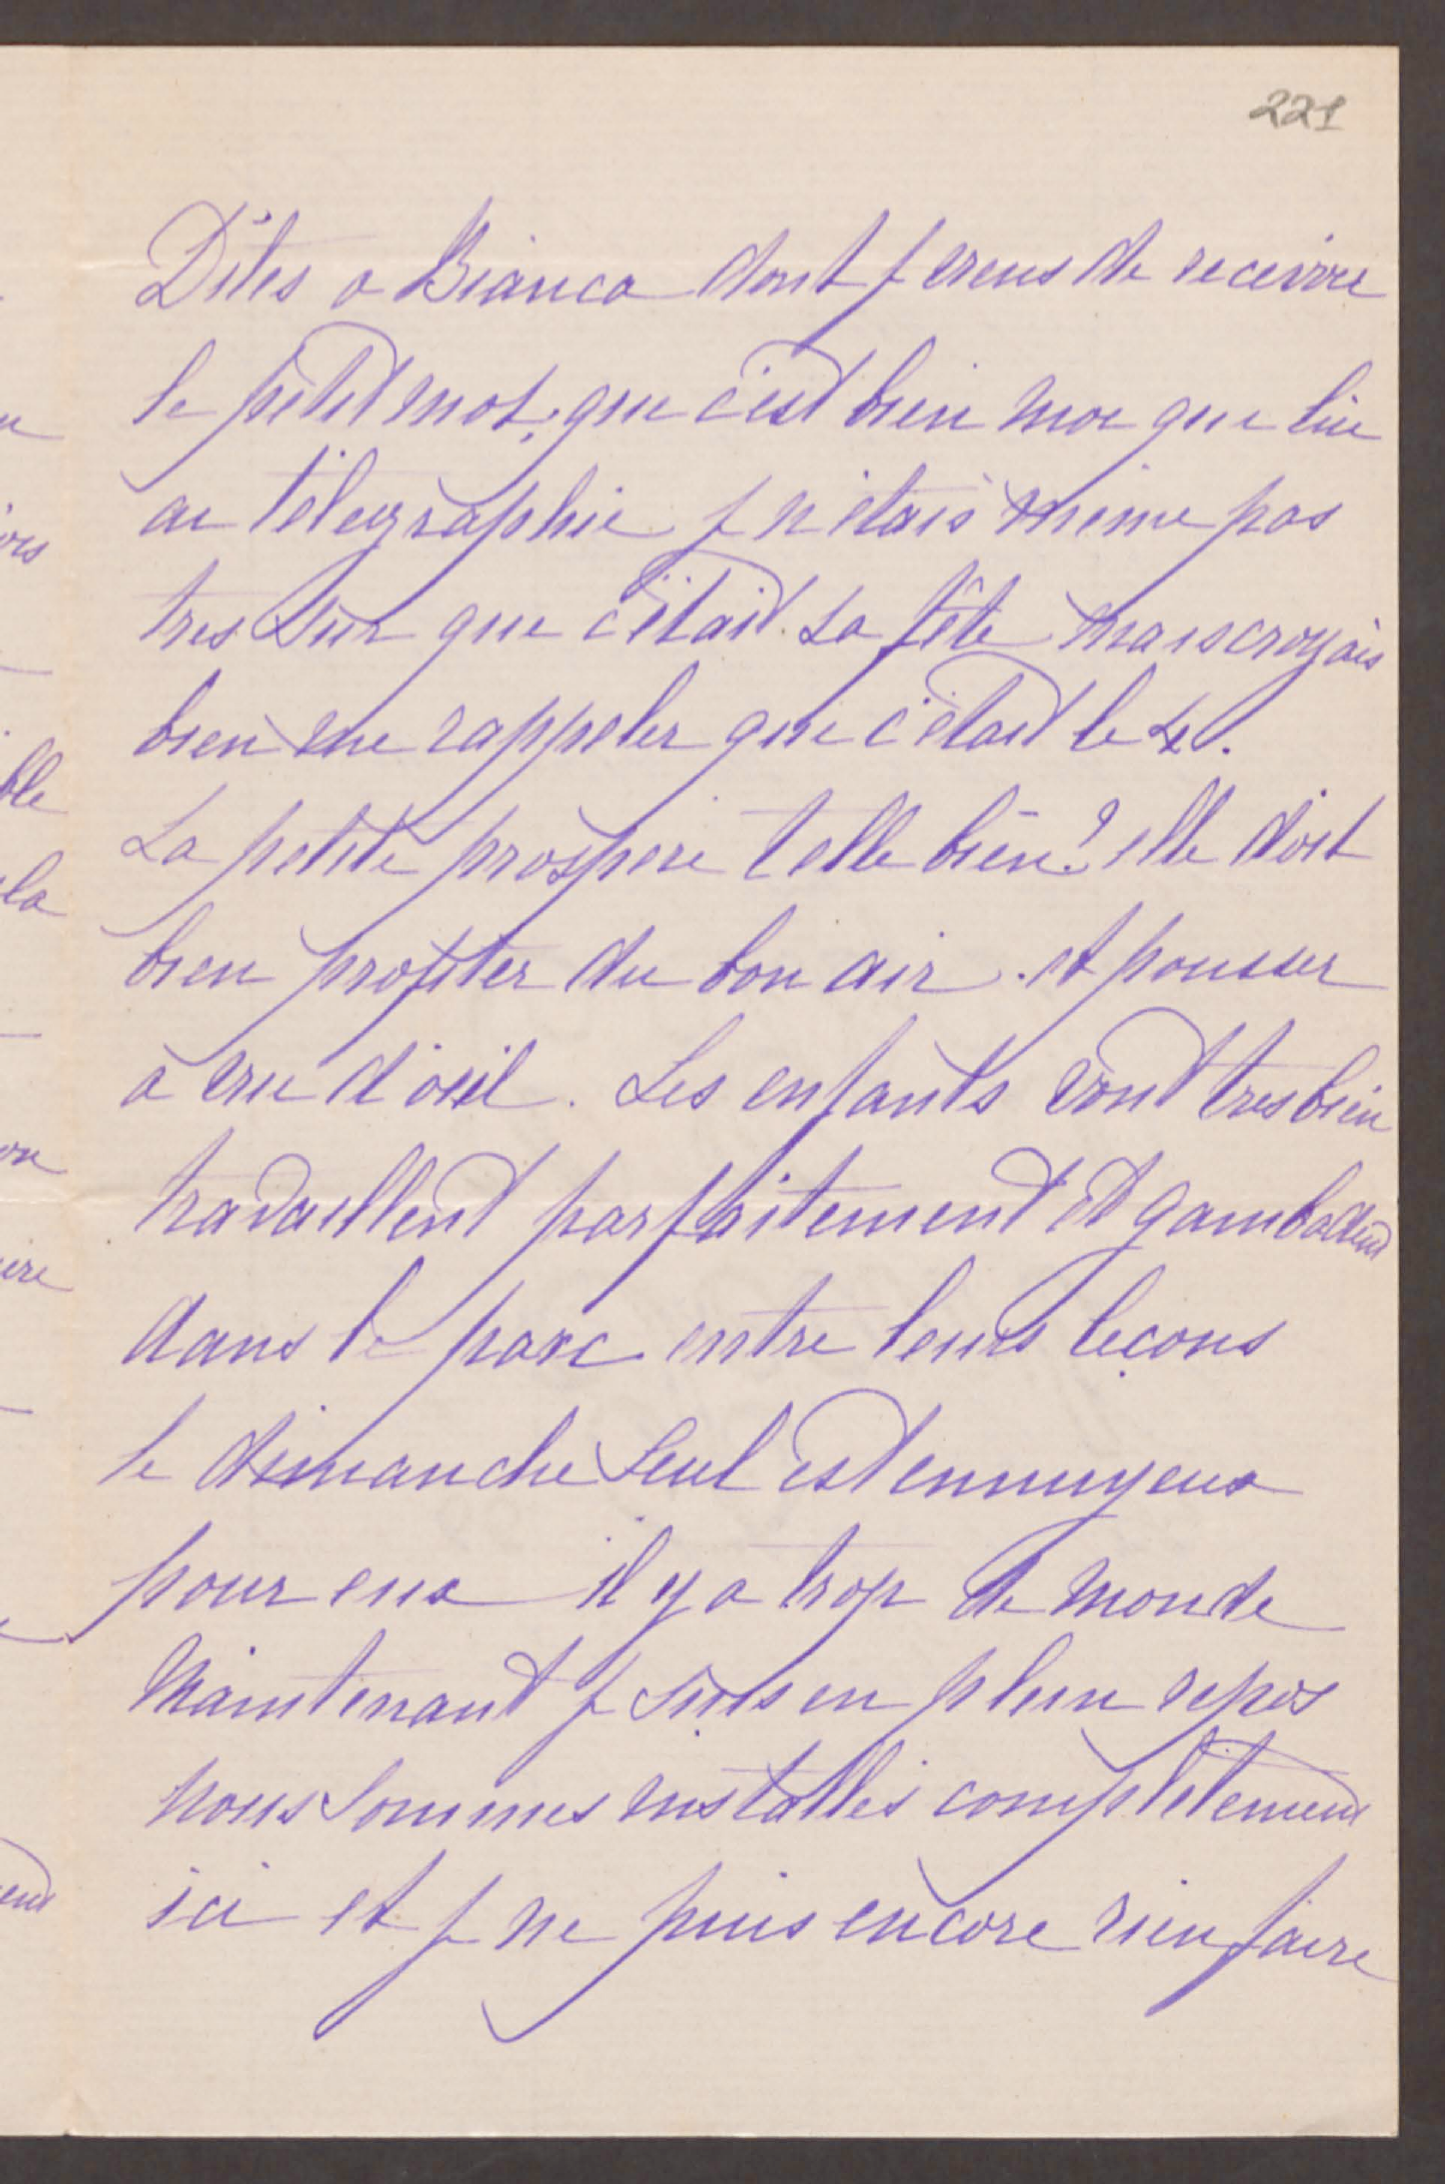 221
Dites a Bianca dont j viens de recevoir
le petit mot, que c'est bien moi qui lui
ai télégraphié j n'étais même pas
tres sûr que c'était sa fête mais croyais
bien me rappeler que c'était le 4.
La petite prospere t elle bien? elle doit
bien profiter du bon air. et pousser
à vue d'oeil. Les enfants vont tres bien
travaillent parfaitement et gambadent
dans le parc entre leurs leçons
le dimanche seul est ennuyeux
pour eux il y a trop de monde
Maintenant j suis en plein repos
nous sommes installés complètement
ici et j ne puis encore rien faire
ble
la